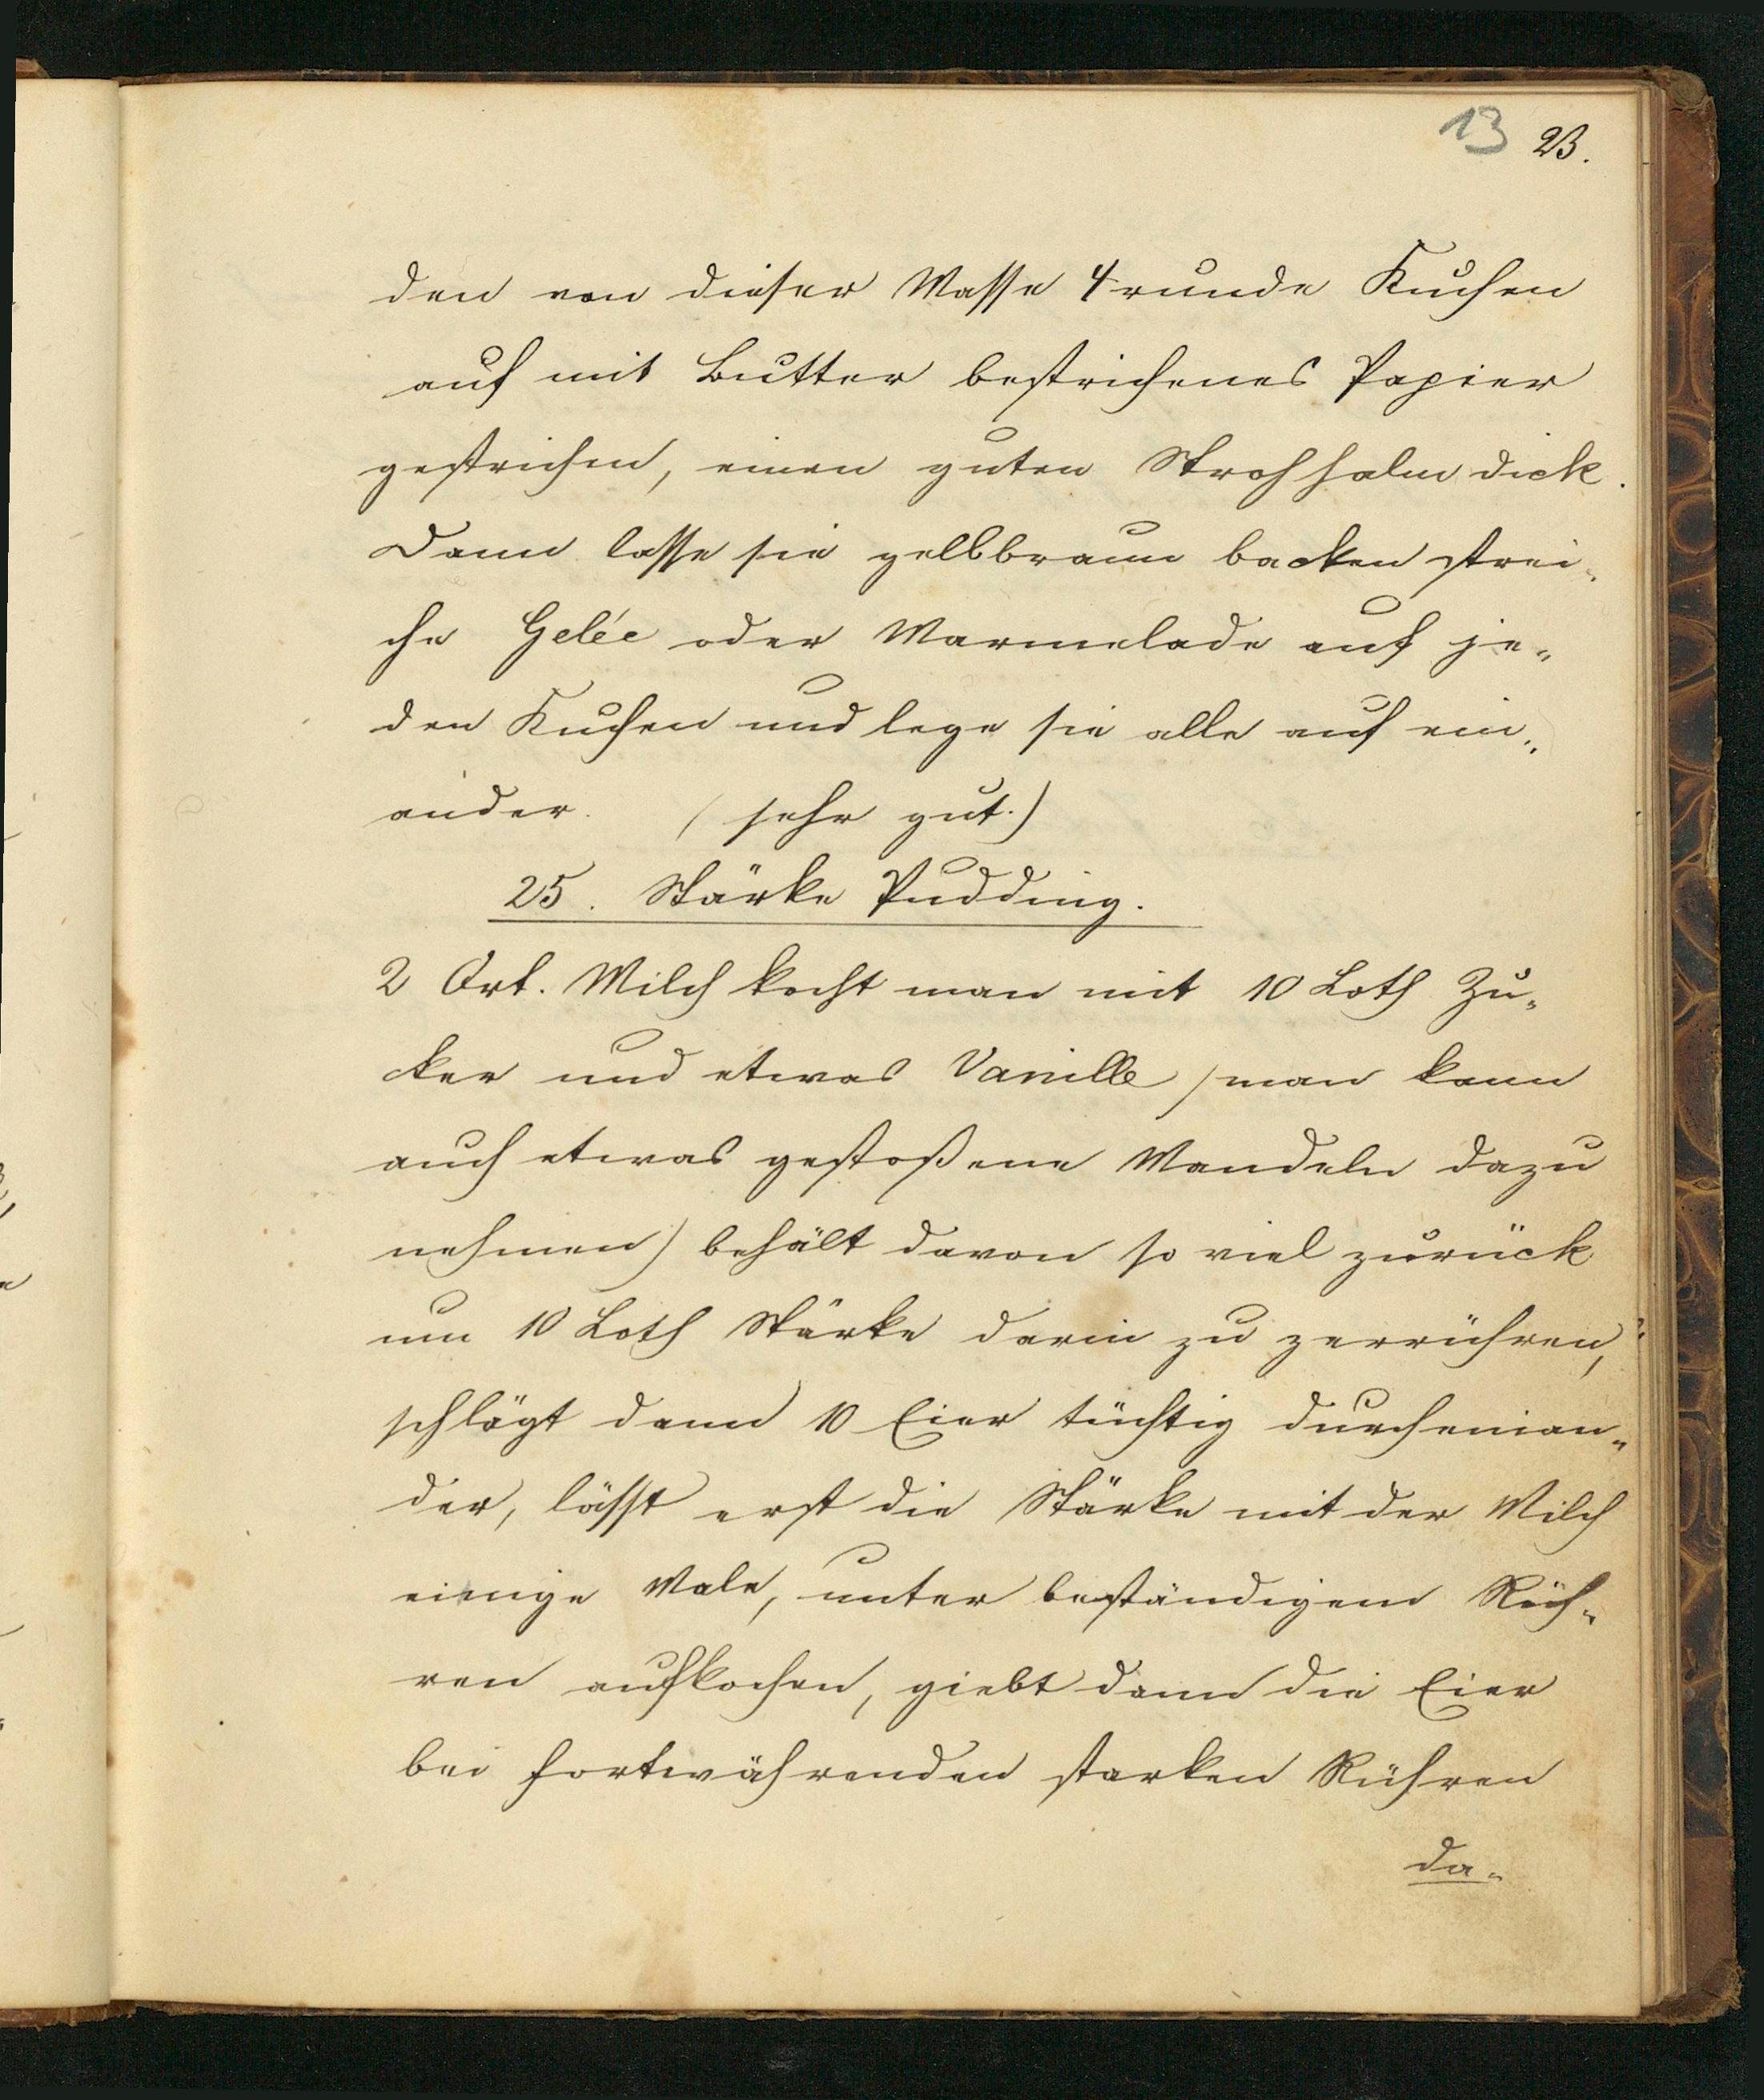 13 23.
den von dieser Masse 4 runde Kuchen
auf mit Butter bestrichenes Papier
gestrichen, einen guten Strohhalm dick.
Dann lasse sie gelbbraun backen strei-
che Gelée oder Marmelade auf je-
den Kuchen und lege sie alle auf ein-
ander. (sehr gut.)
25. Stärke Pudding.
2 Ort. Milch kocht man mit 10 Loth Zu-
cker und etwas Vanille (man kann
auch etwas gestoßene Mandeln dazu
nehmen) behält davon so viel zurück
um 10 Loth Stärke darin zu zerrühren,
schlägt dann 10 Eier tüchtig durcheinan-
der, lässt erst die Stärke mit der Milch
einige Male, unter beständigem Rüh-
ren aufkochen, giebt dann die Eier
bei fortwährenden starken Rühren
da-